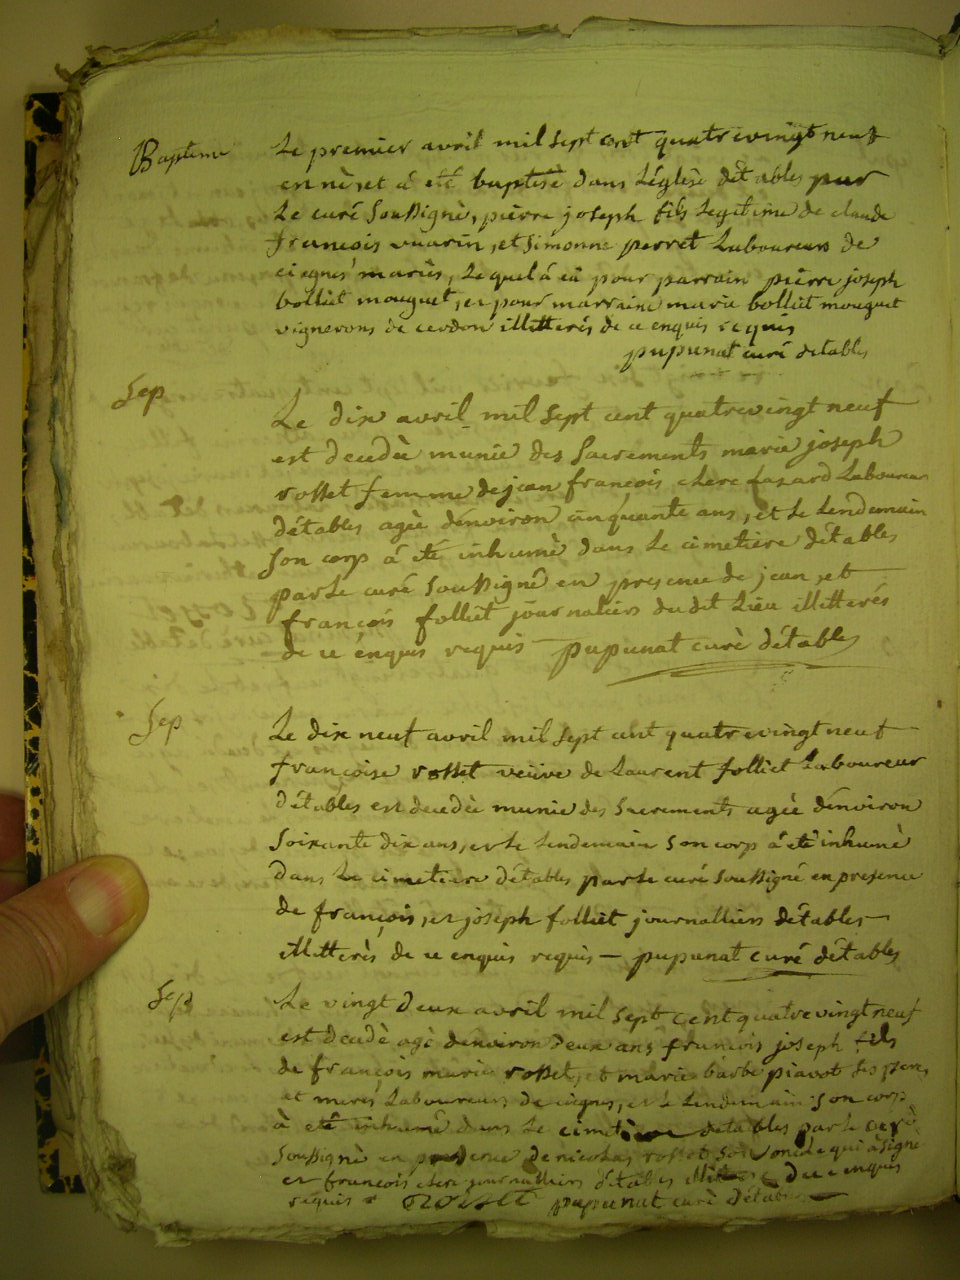 Baptême
Le premier avril mil sept cent quatrevingt neuf
en né, et á eté baptisé dans L'église détables par
Le curé soussigné, pierre joseph fils Legitime de claude
françois vuarin, et simonne perret Laboureurs de
ciegnes mariés, Lequel á eû pour parrain pierre joseph
bolliet mouguet, et pour marraine marie bolliet mouguet
vignerons de cerdon illitterés de ce enquis requis
pupunat curé detables
Sep
Le dix avril mil sept cent quatrevingt neuf
est decedèe munie des Sacrements marie joseph
rosset femme de jean françois chere Laboureur
détables agèe dénviron cinquante ans, et le Lendemain
son corp á eté inhumè dans Le cimetiere détables
par Le curé soussigné en presence de jean, et
françois folliet journaliers dudit Lieu illitterés
de ce énquis requis pupunat curè détables
Sep
Le dix neuf avril mil sept cent quatrevingt neuf
françoise rosset veüve de Laurent folliet Laboureur
détables est decedèe munie des sacrements agèe dénviron
soixante dix ans, et le Lendemain son corp á eté inhumè
dans Le cimetiere détables par Le curé soussigné en presence
de françois, et joseph folliet journalliers détables
illitterés de ce enquis requis – pupunat curé détables
Sep
Le vingt deux avril mil sept cent quatre vingt neuf
est decedè agé dénviron deux ans françois joseph fils
de françois marie rosset, et marie barbe piavot ses peres
et meres Laboureurs de ciegnes, et le Lendemain son corp
à eté inhumé dans Le cimetiere détables par Le curé
soussigné en presence de nicolas rosset son oncle qui à signé
et francois chere journalliers détables illitteré de ce enquis
requis rosset pupunat curè détables